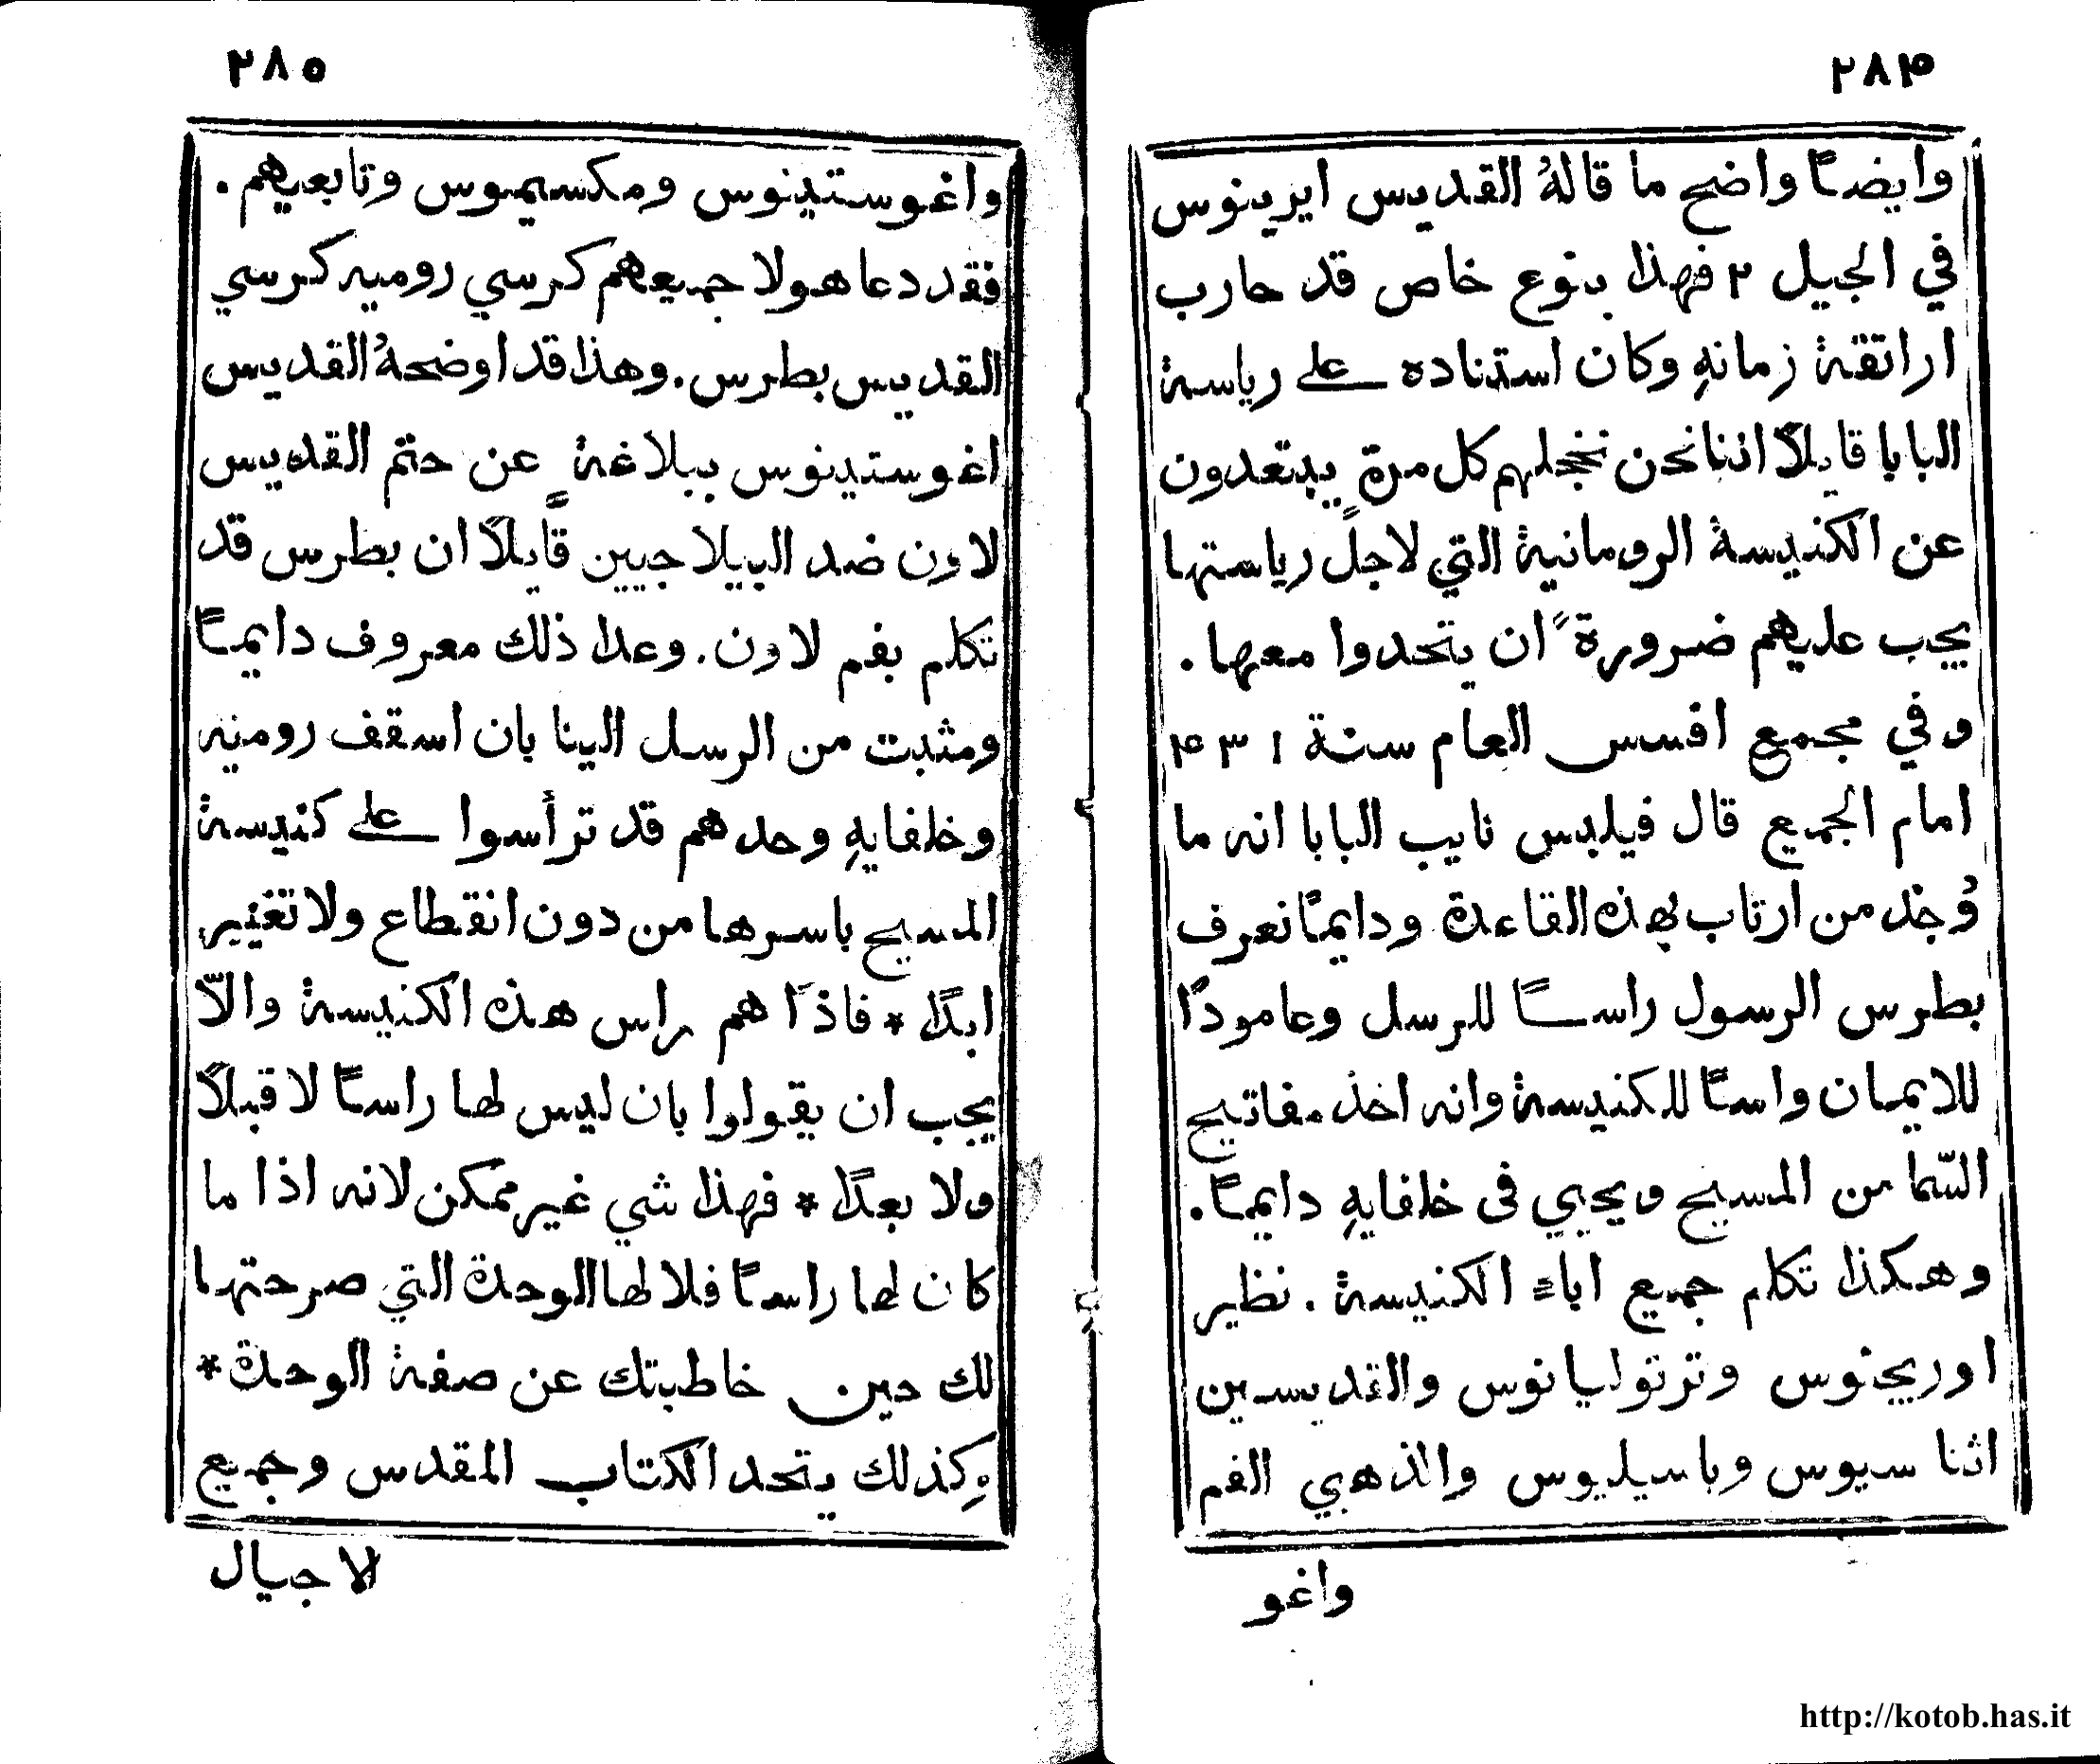 ٢٨٤
وايضاً واضح ما قالهُ القديس ايرينوس
في الجيل ٢ فهذا بنوع خاص قد حارب
اراتقة زمانهِ وكان استناده على رياسة
البابا قايلاً اننا نحن نخجلهم كل مرة يبتعدون
عن الكنيسة الرومانية التي لاجل رياستها
يجب عليهم ضرورةً ان يتحدوا معها .
وفي مجمع افسس العام سنة ٤٣١
امام الجميع قال فيلبس نايب البابا انه ما
وُجد من ارتاب بهذه القاعدة ودايماً نعرف
بطرس الرسول راساً للرسل وعاموداً
للايمان واساً للكنيسة وانه اخذ مفاتيح
السّما من المسيح ويحيي في خلفايهِ دايماً .
وهكذا تكلم جميع اباء الكنيسة . نظير
اوريجنوس وترتوليانوس والقديسين
اثناسيوس وباسيليوس والذهبي الفم
واغو
٢٨٥
واغوستينوس ومكسيموس وتابعيهم .
فقد دعا هولا جميعهم كرسي روميه كرسي
القديس بطرس . وهذا قد اوضحهُ القديس
اغوستينوس ببلاغةٍ عن حتم القديس
لاون ضد البيلاجيين قايلاً ان بطرس قد
تكلم بفم لاون . وعدا ذلك معروف دايماً
ومثبت من الرسل الينا بان اسقف روميه
وخلفايهِ وحدهم قد ترأسوا على كنيسة
المسيح باسرها من دون انقطاع ولا تغيير
ابداً * فاذاً هم راس هذه الكنيسة والاّ
يجب ان يقولوا بان ليس لها راساً لا قبلاً
ولا بعداً * فهذا شي غير ممكن لانه اذا ما
كان لها راساً فلا لها الوحدة التي صرحتها
لك حين خاطبتك عن صفة الوحدة *
وكذلك يتحد الكتاب المقدس وجميع
الاجيال
http://kotob.has.it